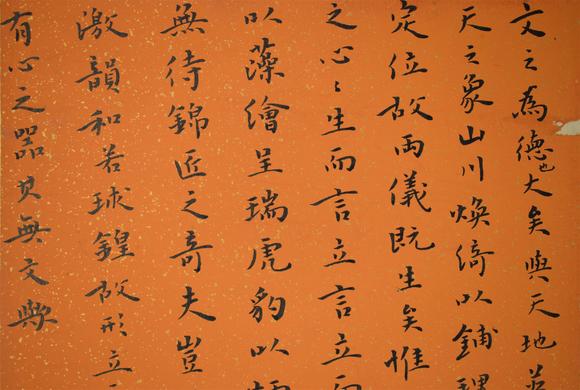 文之為德也大矣與天地
天之象山川煥綺以鋪
定位故兩儀既生矣惟
之心〻生而言立言立而
以藻繪呈瑞虎豹以
無待錦匠之奇夫豈
激韻和若球鍠故形立
有心之器其無文歟